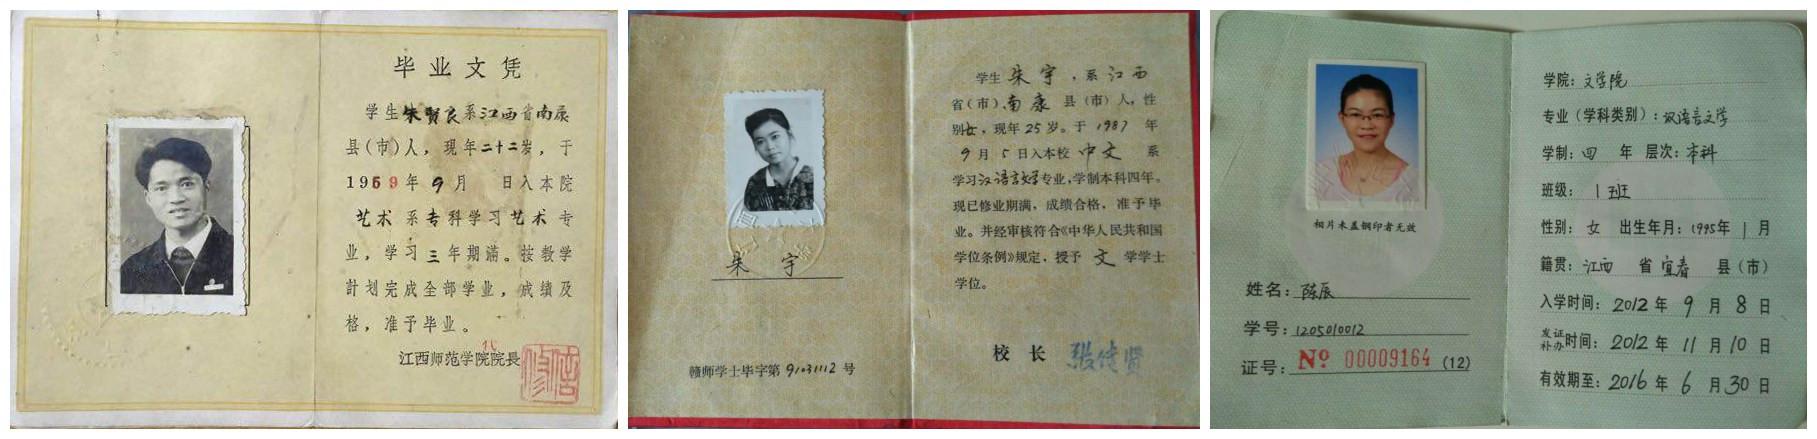 毕业文凭
学生朱贤良系江西省南康
县(市)人，现年二十二岁，于
1959年9月 日入本院
艺术系专科学习艺术专
业，学习三年期满。按教学
計划完成全部学业，成绩及
格，准予毕业。
江西师范学院院長
学生 朱宇，系江西
省(市)南康 县(市)人，性
别女，现年25岁。于1987年
9月5日入本校 中文 系
学习汉语言文学专业，学制本科四年。
现已修业期满，成绩合格，准予毕
业。并经审核符合《中华人民共和国
学位条例》规定，授予 文 学学士
学位。
朱宇
校长
赣师学士毕字第91031112号
相片未盖钢印者无效
姓名：陈辰
学号：1205010012
证号：Nº 00009164 (12)
学院：文学院
专业(学科类别)：汉语言文学
学制：四 年 层次：本科
班级：1班
性别：女 出生年月：1995年1月
籍贯：江西 省 宜春 县(市)
入学时间：2012年9月8日
发证
补办时间：2012年11月10日
有效期至：2016年6月30日